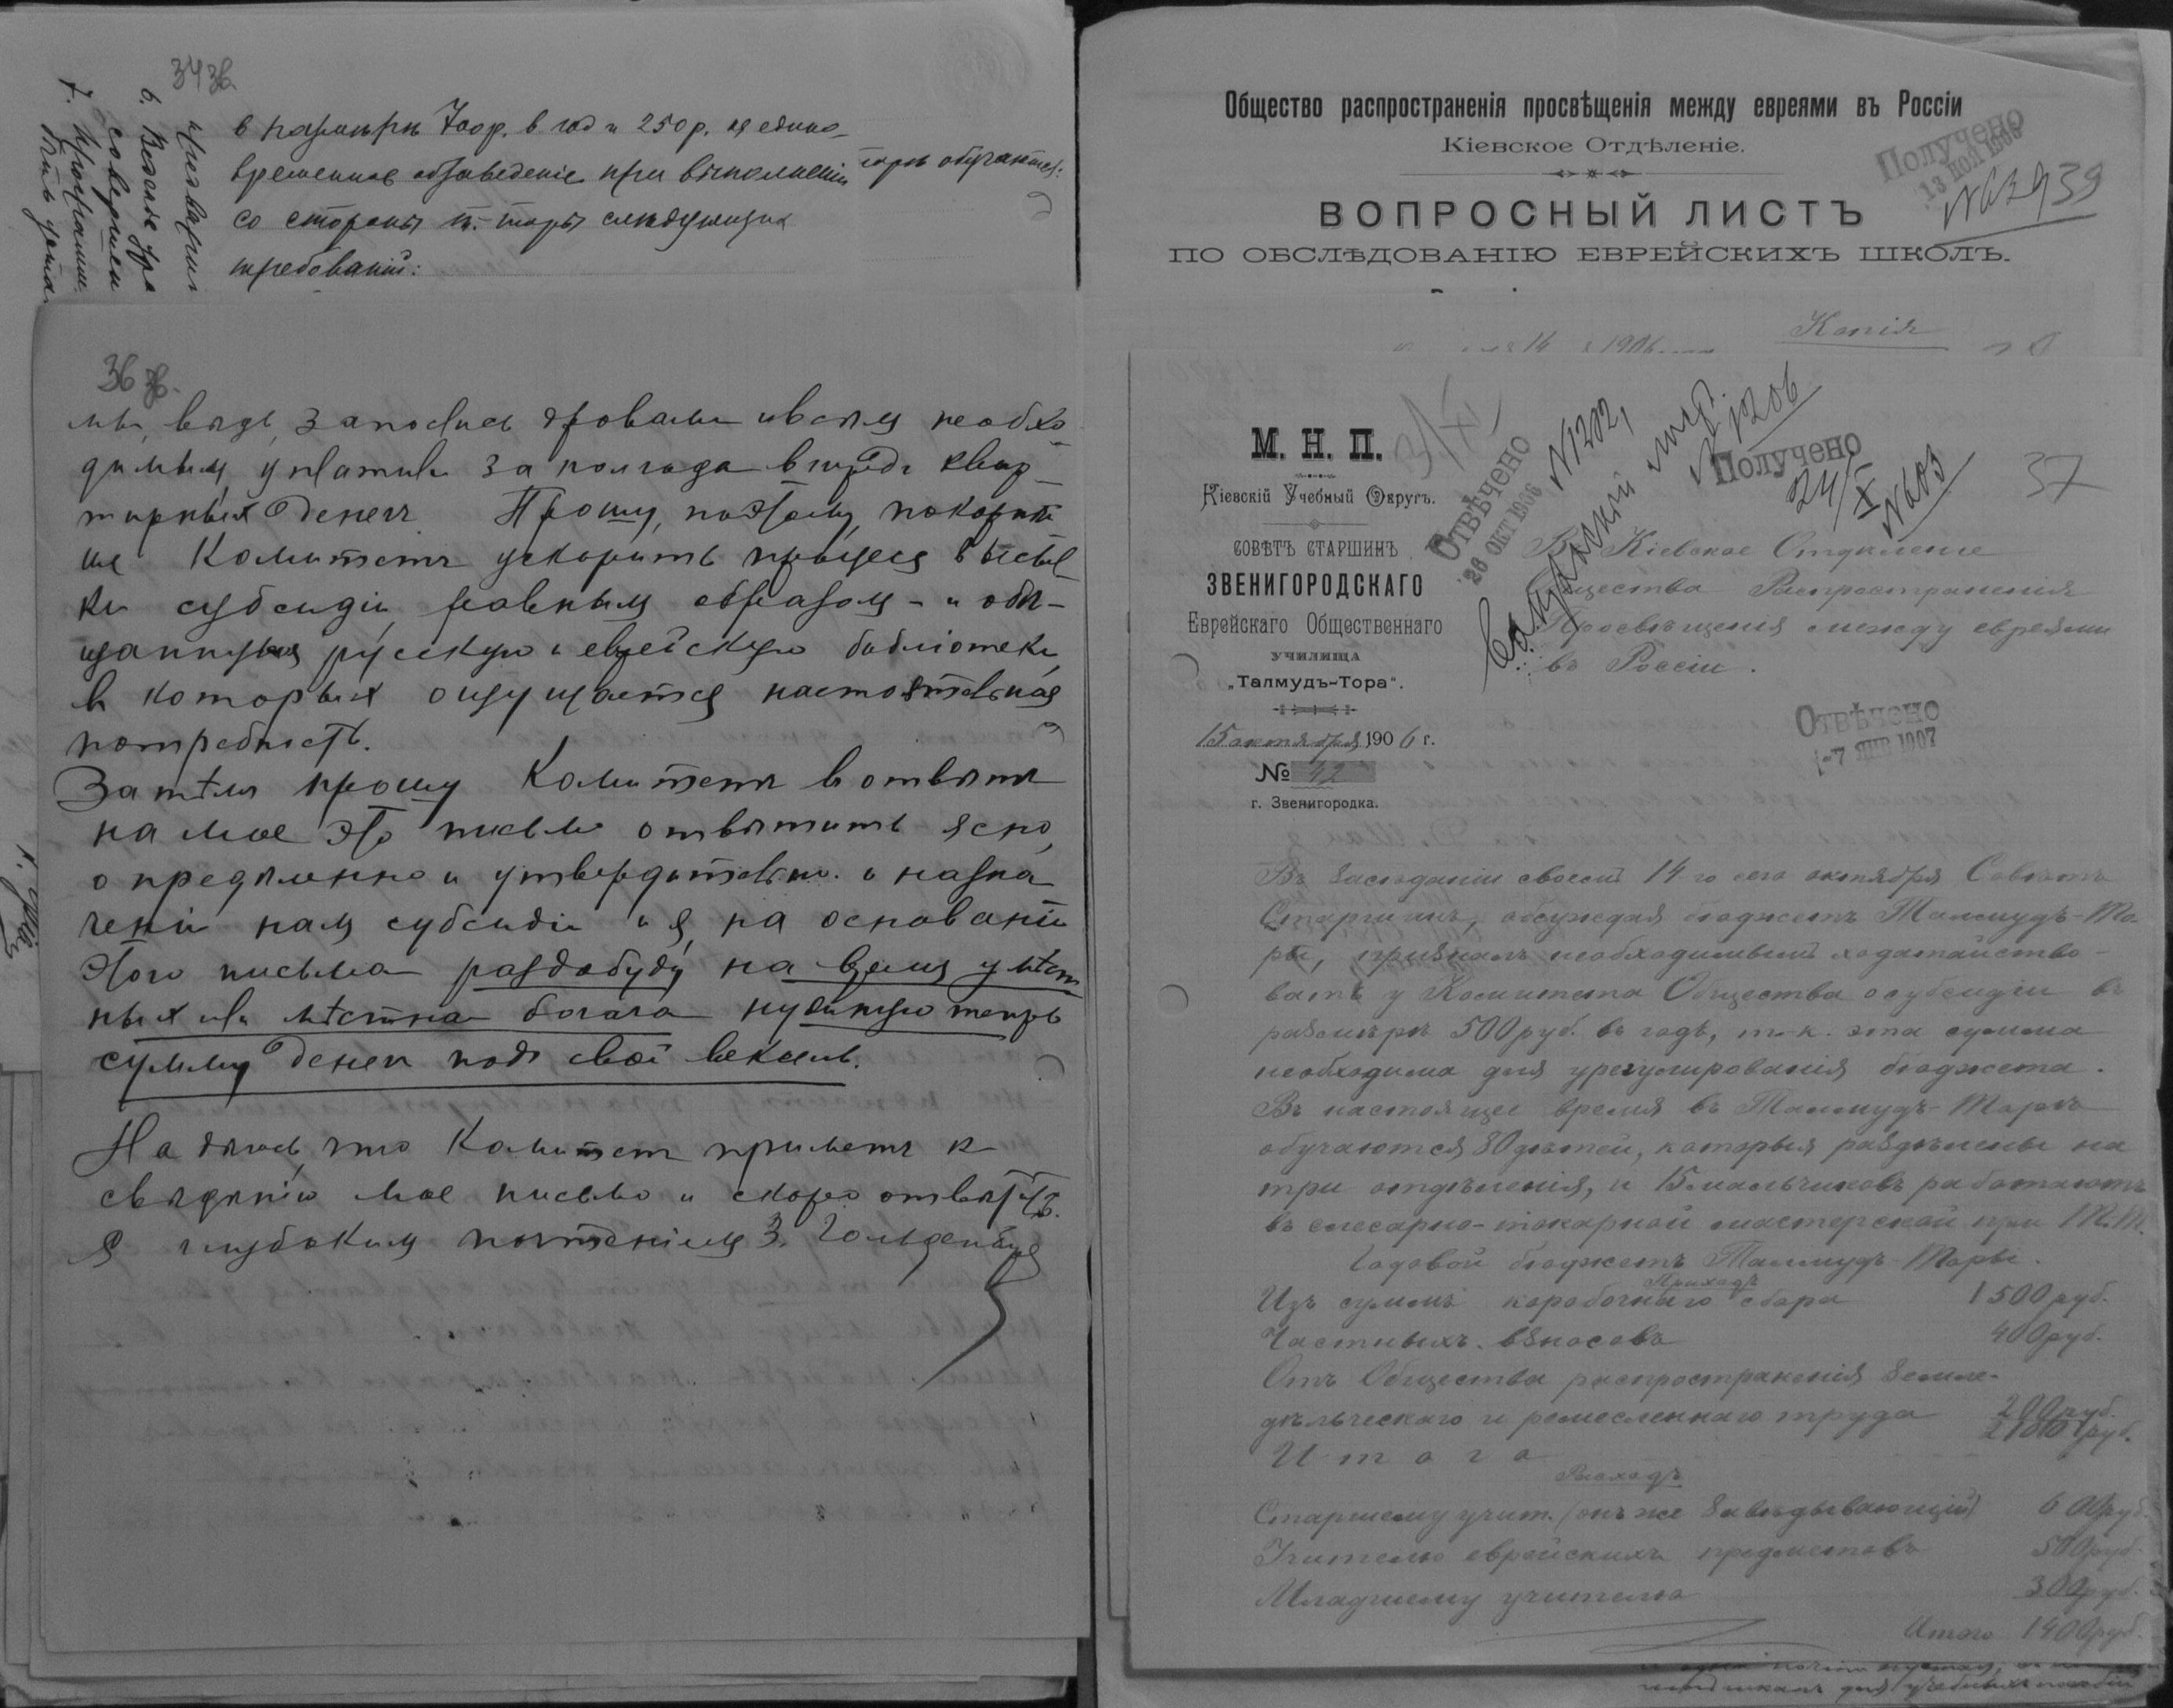 34 об.
в размѣрѣ 700 р. в год и 250 р. на едино-
временное обзаведеніе при выполненіи
со стороны т.-торы следующих
требованій:
6.
7.
36 об.
мы, вѣдь, запаслись дровами и всѣм необхо-
димым, уплатив за полгода вперед квар-
тирных денег. Прошу, поэтому, покорнѣй-
ше Комитет ускорить процесс высыл-
ки субсидіи, равным образом - и обѣ-
щанную русскую и еврейскую библіотеки,
в которых ощущается настоятельная
потребность.
Затѣм прошу Комитет в отвѣт
на мое это письмо отвѣтить ясно,
опредѣленно и утвердительно о назна-
чении нам субсидіи и я, на основаніи
этого письма раздобуду на время у мѣст-
ных или мѣстна богача нужную теперь
сумму денег под свой вексель.
Надѣюсь, что Комитет приметъ к
свѣдѣнію мое письмо и скоро отвѣтитъ.
С глубоким почтеніем З.
Общество распространенія просвѣщенія между евреями въ Россіи
Кіевское Отдѣленіе.
Получено
13 НОЯ 1906
№ 939
ВОПРОСНЫЙ ЛИСТЪ
ПО ОБСЛѢДОВАНІЮ ЕВРЕЙСКИХЪ ШКОЛЪ.
Копія
14 1906
М. Н. П.
Кіевскій Учебный Округъ.
СОВѢТЪ СТАРШИНЪ
ЗВЕНИГОРОДСКАГО
Еврейскаго Общественнаго
УЧИЛИЩА
„Талмудъ-Тора“.
15 октября 1906 г.
№ 42
г. Звенигородка.
31/XI
Отвѣчено
26 ОКТ 1906
№ 1302,
№ 1206
Получено
24/X
№ 603
37
Въ Кіевское Отдѣленіе
Общества Распространенія
Просвѣщенія между евреями
въ Россіи.
Отвѣчено
-7 ЯНВ 1907
Въ засѣданіи своемъ 14 го сего октября Совѣтъ
Старшинъ, обсуждая бюджетъ Талмудъ-То-
ры, призналъ необходимымъ ходатайство-
вать у Комитета Общества о субсидіи въ
размѣрѣ 500 руб. въ годъ, т. к. эта сумма
необходима для урегулированія бюджета.
Въ настоящее время въ Талмудъ-Торѣ
обучаются 80 дѣтей, которыя раздѣлены на
три отдѣленія, и 15 мальчиковъ работаютъ
въ слесарно-токарной мастерской при Т.Т.
Годовой бюджетъ Талмудъ-Торы.
Приходъ
Изъ суммъ коробочнаго сбора 1500 руб.
Частныхъ взносовъ 400 руб.
Отъ Общества распространенія земле-
дѣльческаго и ремесленнаго труда 200 руб.
Итого 2100 руб.
Расходъ
Старшему учит. (онъ же завѣдывающій) 600 руб.
Учителю еврейскихъ предметовъ 500 руб.
Младшему учителю 300 руб.
Итого 1400 руб.